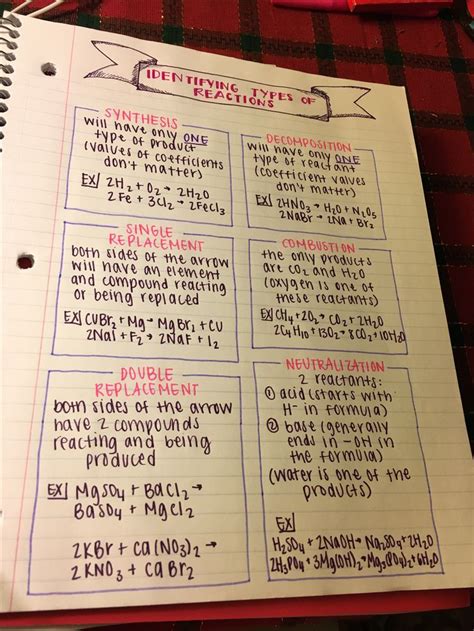 IDENTIFYING TYPES OF
REACTIONS
SYNTHESIS
will have only ONE
type of product
(values of coefficients
don't matter)
EX] 2H₂ + O₂ → 2H₂O
2Fe + 3Cl₂ → 2FeCl₃
DECOMPOSITION
will have only ONE
type of reactant
(coefficient values
don't matter)
EX] 2HNO₃ → H₂O + N₂O₅
2NaBr → 2Na + Br₂
SINGLE
REPLACEMENT
both sides of the arrow
will have an element
and compound reacting
or being replaced
EX] CuBr₂ + Mg → MgBr₂ + Cu
2NaI + F₂ → 2NaF + I₂
COMBUSTION
the only products
are CO₂ and H₂O
(oxygen is one of
these reactants)
EX] CH₄ + 2O₂ → CO₂ + 2H₂O
2C₄H₁₀ + 13O₂ → 8CO₂ + 10H₂O
DOUBLE
REPLACEMENT
both sides of the arrow
have 2 compounds
reacting and being
produced
EX] MgSO₄ + BaCl₂ →
BaSO₄ + MgCl₂
2KBr + Ca(NO₃)₂ →
2KNO₃ + CaBr₂
NEUTRALIZATION
2 reactants:
① acid (starts with
H- in formula)
② base (generally
ends in -OH in
the formula)
(water is one of the
products)
EX]
H₂SO₄ + 2NaOH → Na₂SO₄ + 2H₂O
2H₃PO₄ + 3Mg(OH)₂ → Mg₃(PO₄)₂ + 6H₂O